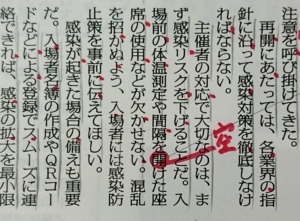 注意を呼び掛けてきた。
再開にあたっては、各業界の指
針に沿って感染対策を徹底しなけ
ればならない。
主催者の対応で大切なのは、ま
ず感染リスクを下げることだ。入
場前の体温測定や間隔を開けた座
空
席の使用などが欠かせない。混乱
を招かぬよう、入場者には感染防
止策を事前に伝えてほしい。
感染が起きた場合の備えも重要
だ。入場者名簿の作成やQRコー
ドなどによる登録でスムーズに連
絡できれば、感染の拡大を最小限